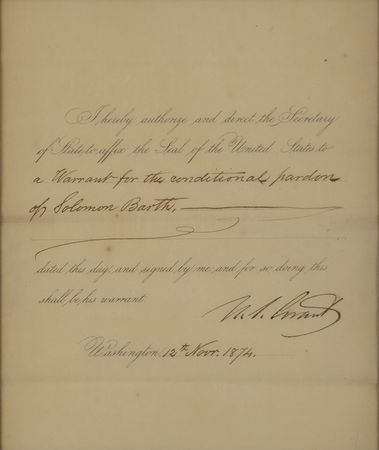 I hereby authorize and direct the Secretary
of State, to affix the Seal of the United States to
a Warrant for the conditional pardon
of Solomon Barth.
dated this day, and signed by me, and for so doing this
shall be his warrant.
U. S. Grant
Washington, 12th Novr. 1874.